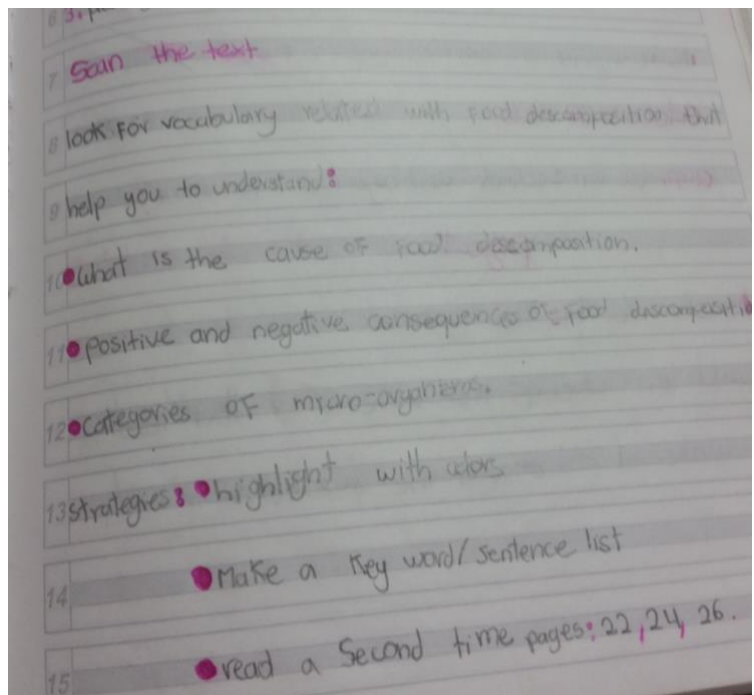 6 3.
7 Scan the text
8 look for vocabulary related with food descomposition that
9 help you to understand:
10 •what is the cause of food descomposition.
11 •positive and negative consequences of food descompositio
12 •categories of micro-organisms.
13 strategies: •highlight with colors
14 •Make a Key word/sentence list
15 •read a Second time pages: 22, 24, 26.